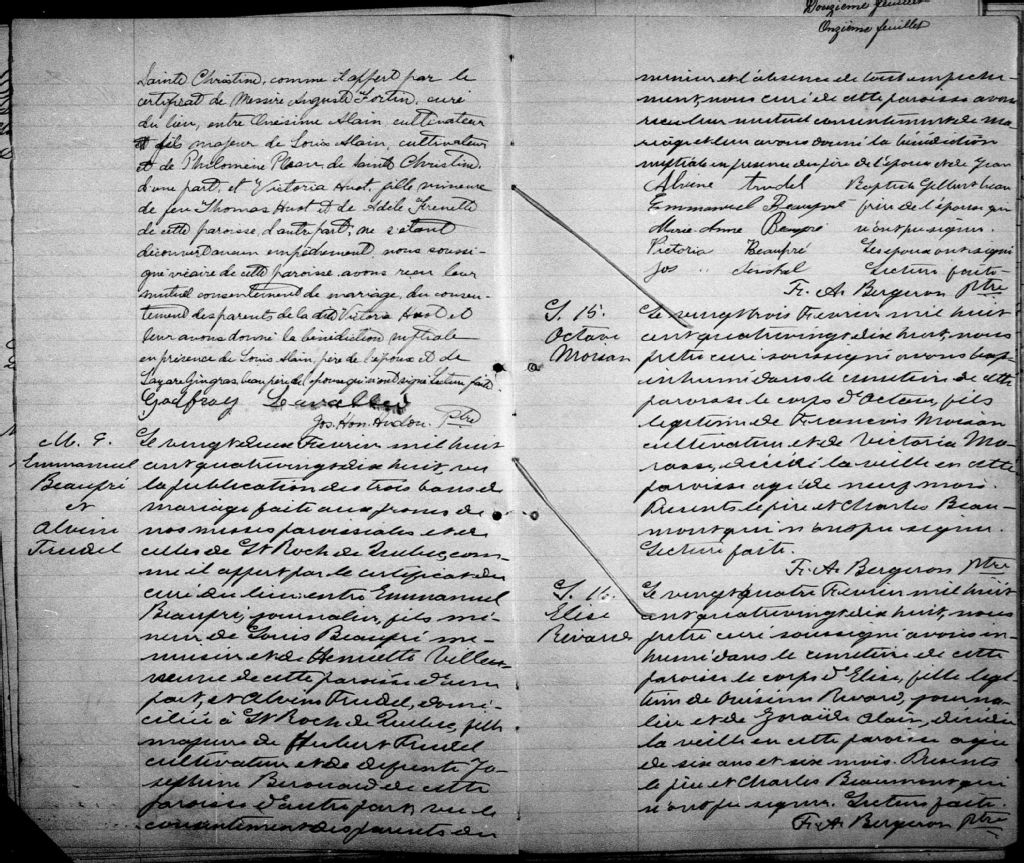 Douzième feuillet
Onzième feuillet
Sainte Christine, comme il appert par le
certificat de Messire Auguste Fortin, curé
du lieu, entre Onésime Alain, cultivateur
fils majeur de Louis Alain, cultivateur
et de Philomène Plean de Sainte Christine,
d'une part, et Victoria Huot, fille mineure
de feu Thomas Huot et de Adèle Frenette
de cette paroisse, d'autre part; ne s'étant
découvert aucun empêchement, nous soussi-
gné vicaire de cette paroisse, avons reçu leur
mutuel consentement de mariage, du consen-
tement des parents de la dite Victoria Huot et
leur avons donné la bénédiction nuptiale
en présence de Louis Alain, père de l'époux et de
Lazare Gingras, beau père de l'épouse qui n'ont signé Lecture faite
Godfray
Jos. Hon. Hudon. Ptre
M. 9.
Emmanuel
Beaupré
et
Alvine
Trudel
Le vingt deux Fevrier mil huit
cent quatrevingt dix huit, vu
la publication des trois bans de
mariage faite aux prones de
nos messes paroissiales et de
celles de St Roch de Quebec, com-
me il appert par le certificat du
curé du lieu entre Emmanuel
Beaupré, journalier, fils mi-
neur de Louis Beaupré me-
nuisier et de Henriette Ville-
neuve de cette paroisse d'une
part, et Alvine Trudel, domi-
ciliée à St Roch de Quebec, fille
majeure de Herbert Trudel
cultivateur et de defunte Jo-
sephine Berouard de cette
paroisse d'autre part, vu le
consentement des parents du
mineur et l'absence de tout empeche-
ment, nous curé de cette paroisse avons
recu leur mutuel consentement de ma-
riage et leur avons donné la bénédiction
nuptiale en presence du père de l'époux et de Jean
Alvine Trudel Baptiste Gilbert beau
Emmanuel Beaupré frère de l'épouse qui
Marie Anne Beaupré n'ont pu signer.
Victoria Beaupré Les époux ont signé
Jos " Lecture faite
Fr. A. Bergeron ptre
S. 15.
Octave
Moisan
Le vingt trois Fevrier mil huit
cent quatrevingt dix huit, nous
pretre curé soussigné avons
inhumé dans le cimetière de cette
paroisse le corps d'Octave, fils
legitime de Francois Moisan
cultivateur et de Victoria Mo-
rasse, décédé la veille en cette
paroisse agé de neuf mois.
Presents le père et Charles Beau-
mont qui n'ont pu signer.
Lecture faite.
Fr. A. Bergeron ptre
S. 16.
Elise
Rivard
Le vingt quatre Fevrier mil huit
cent quatrevingt dix huit, nous
pretre curé soussigné avons in-
humé dans le cimetière de cette
paroisse le corps d'Elise, fille legi-
time de Onésime Rivard, journa-
lier et de Zoraïde Alain, décédée
la veille en cette paroisse agée
de six ans et six mois. Presents
le père et Charles Beaumont qui
n'ont pu signer. Lecture faite.
Fr. A. Bergeron ptre